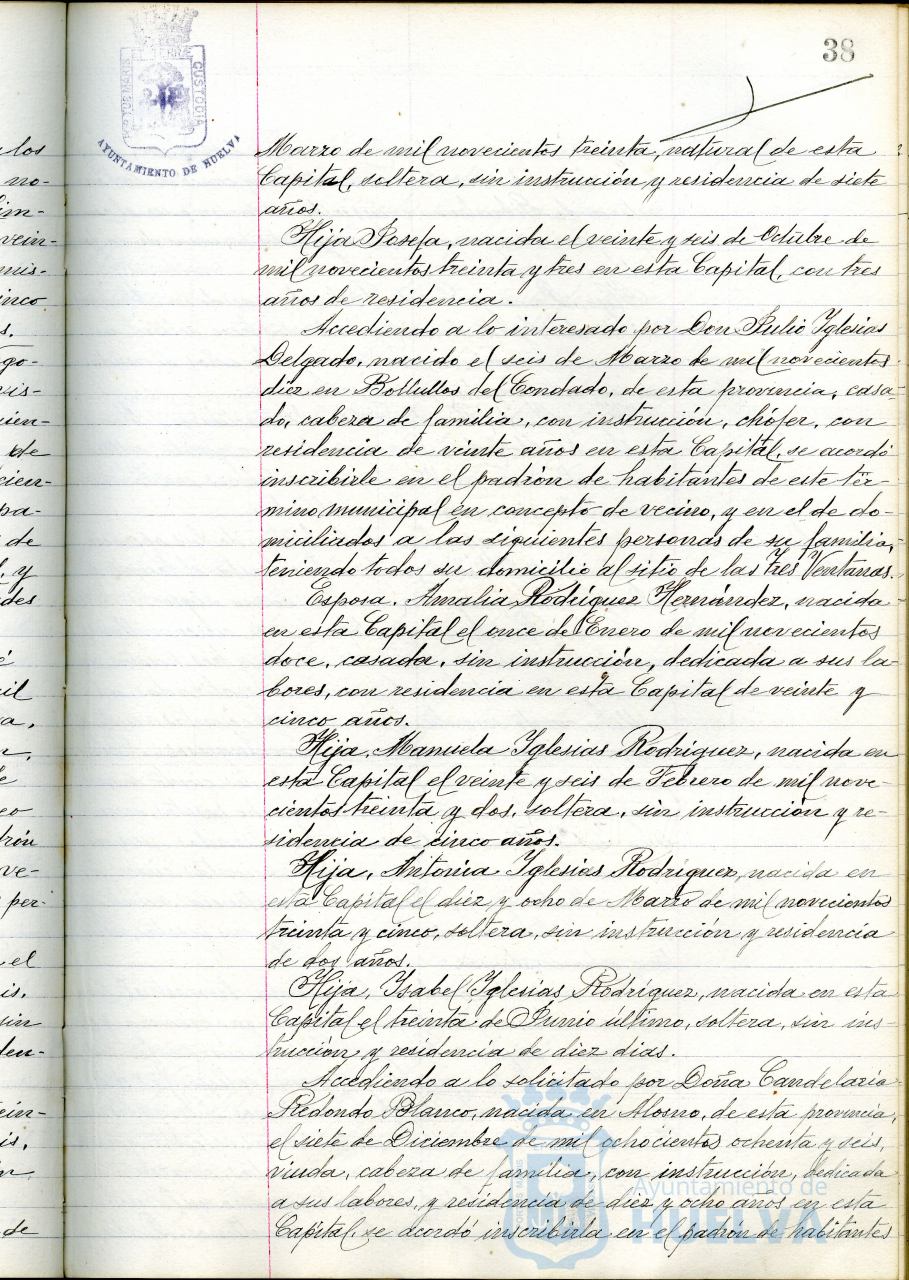 38
PORTUS MARIS
ET TERRÆ
CUSTODIA
AYUNTAMIENTO DE HUELVA
Marzo de mil novecientos treinta, natural de esta
Capital, soltera, sin instrucción y residencia de siete
años.
Hija Josefa, nacida el veinte y seis de Octubre de
mil novecientos treinta y tres en esta Capital, con tres
años de residencia.
Accediendo a lo interesado por Don Julio Yglesias
Delgado, nacido el seis de Marzo de mil novecientos
diez en Bollullos del Condado, de esta provincia, casa-
do, cabeza de familia, con instrucción, chófer, con
residencia de veinte años en esta Capital, se acordó
inscribirle en el padrón de habitantes de este tér-
mino municipal en concepto de vecino, y en el de do-
miciliados a las siguientes personas de su familia,
teniendo todos su domicilio al sitio de las Tres Ventanas.
Esposa, Amalia Rodríguez Hernández, nacida
en esta Capital el once de Enero de mil novecientos
doce, casada, sin instrucción, dedicada a sus la-
bores, con residencia en esta Capital de veinte y
cinco años.
Hija, Manuela Yglesias Rodríguez, nacida en
esta Capital el veinte y seis de Febrero de mil nove-
cientos treinta y dos, soltera, sin instrucción y re-
sidencia de cinco años.
Hija, Antonia Yglesias Rodríguez, nacida en
esta Capital el diez y ocho de Marzo de mil novecientos
treinta y cinco, soltera, sin instrucción y residencia
de dos años.
Hija, Ysabel Yglesias Rodríguez, nacida en esta
Capital el treinta de Junio último, soltera, sin ins-
trucción y residencia de diez dias.
Accediendo a lo solicitado por Doña Candelaria
Redondo Blanco, nacida en Alosno, de esta provincia,
el siete de Diciembre de mil ochocientos ochenta y seis,
viuda, cabeza de familia, con instrucción, dedicada
a sus labores, y residencia de diez y ocho años en esta
Capital, se acordó inscribirla en el padrón de habitantes
Ayuntamiento de
HUELVA